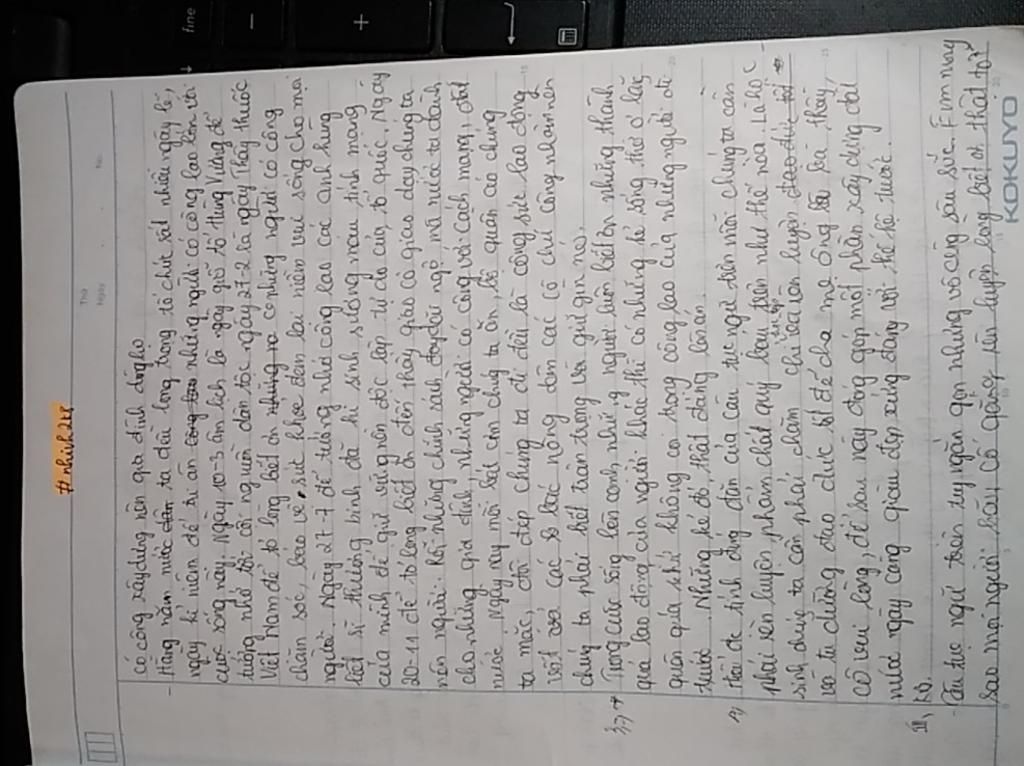 #nhinh2k8
Thứ
Ngày
No.
có công xây dựng nên gia đình dòng họ
- Hàng năm nước dân ta đều long trọng tổ chức rất nhiều ngày lễ,
ngày kỉ niệm để tri ân công lao những người có công lao lớn với
cuộc sống này. Ngày 10-3 âm lịch là ngày giỗ tổ Hùng Vương để
tưởng nhớ tới cội nguồn dân tộc ngày 27-2 là ngày Thầy thuốc
Việt Nam để tỏ lòng biết ơn những ra những người có công
chăm sóc, bảo vệ sức khỏe đem lại niềm vui sống cho mọi
người. Ngày 27-7 để tưởng nhớ công lao các anh hùng
liệt sĩ thương binh đã hi sinh xương máu tính mạng
của mình để giữ vững nền độc lập tự do của tổ quốc. Ngày
20-11 để tỏ lòng biết ơn đến thầy giáo cô giáo dạy chúng ta
nên người. Rồi những chính sách đãi ngộ mà nước ta dành
cho những gia đình, những người có công với cách mạng, đất
nước. Ngày nay mỗi bát cơm chúng ta ăn, bộ quần áo chúng
ta mặc, đôi dép chúng ta đi đều là công sức lao động
vất vả các bác nông dân các cô chú công nhân nên
chúng ta phải biết trân trọng và giữ gìn nó.
3, + Trong cuộc sống bên cạnh những người luôn biết ơn những thành
quả lao động của người khác thì có những kẻ sống thờ ơ lãng
quên quá khứ không coi trọng công lao của những người đi
trước. Những kẻ đó thật đáng lên án.
4, Thấy dc tính đúng đắn của câu tục ngữ trên mỗi chúng ta cần
phải rèn luyện phẩm chất quý báu trên như thế nào. Là học
sinh chúng ta cần phải chăm chỉ học tập rèn luyện
và tu dưỡng đạo đức tốt để cha mẹ ông bà, thầy,
cô vui lòng, để sau này đóng góp một phần xây dựng đất
nước ngày càng giàu đẹp xứng đáng với thế hệ trước.
III, KB.
- Câu tục ngữ trên tuy ngắn gọn nhưng vô cùng sâu sắc. Em mong
sao mọi người hãy cố gắng rèn luyện lòng biết ơn thật tốt
KOKUYO
fine